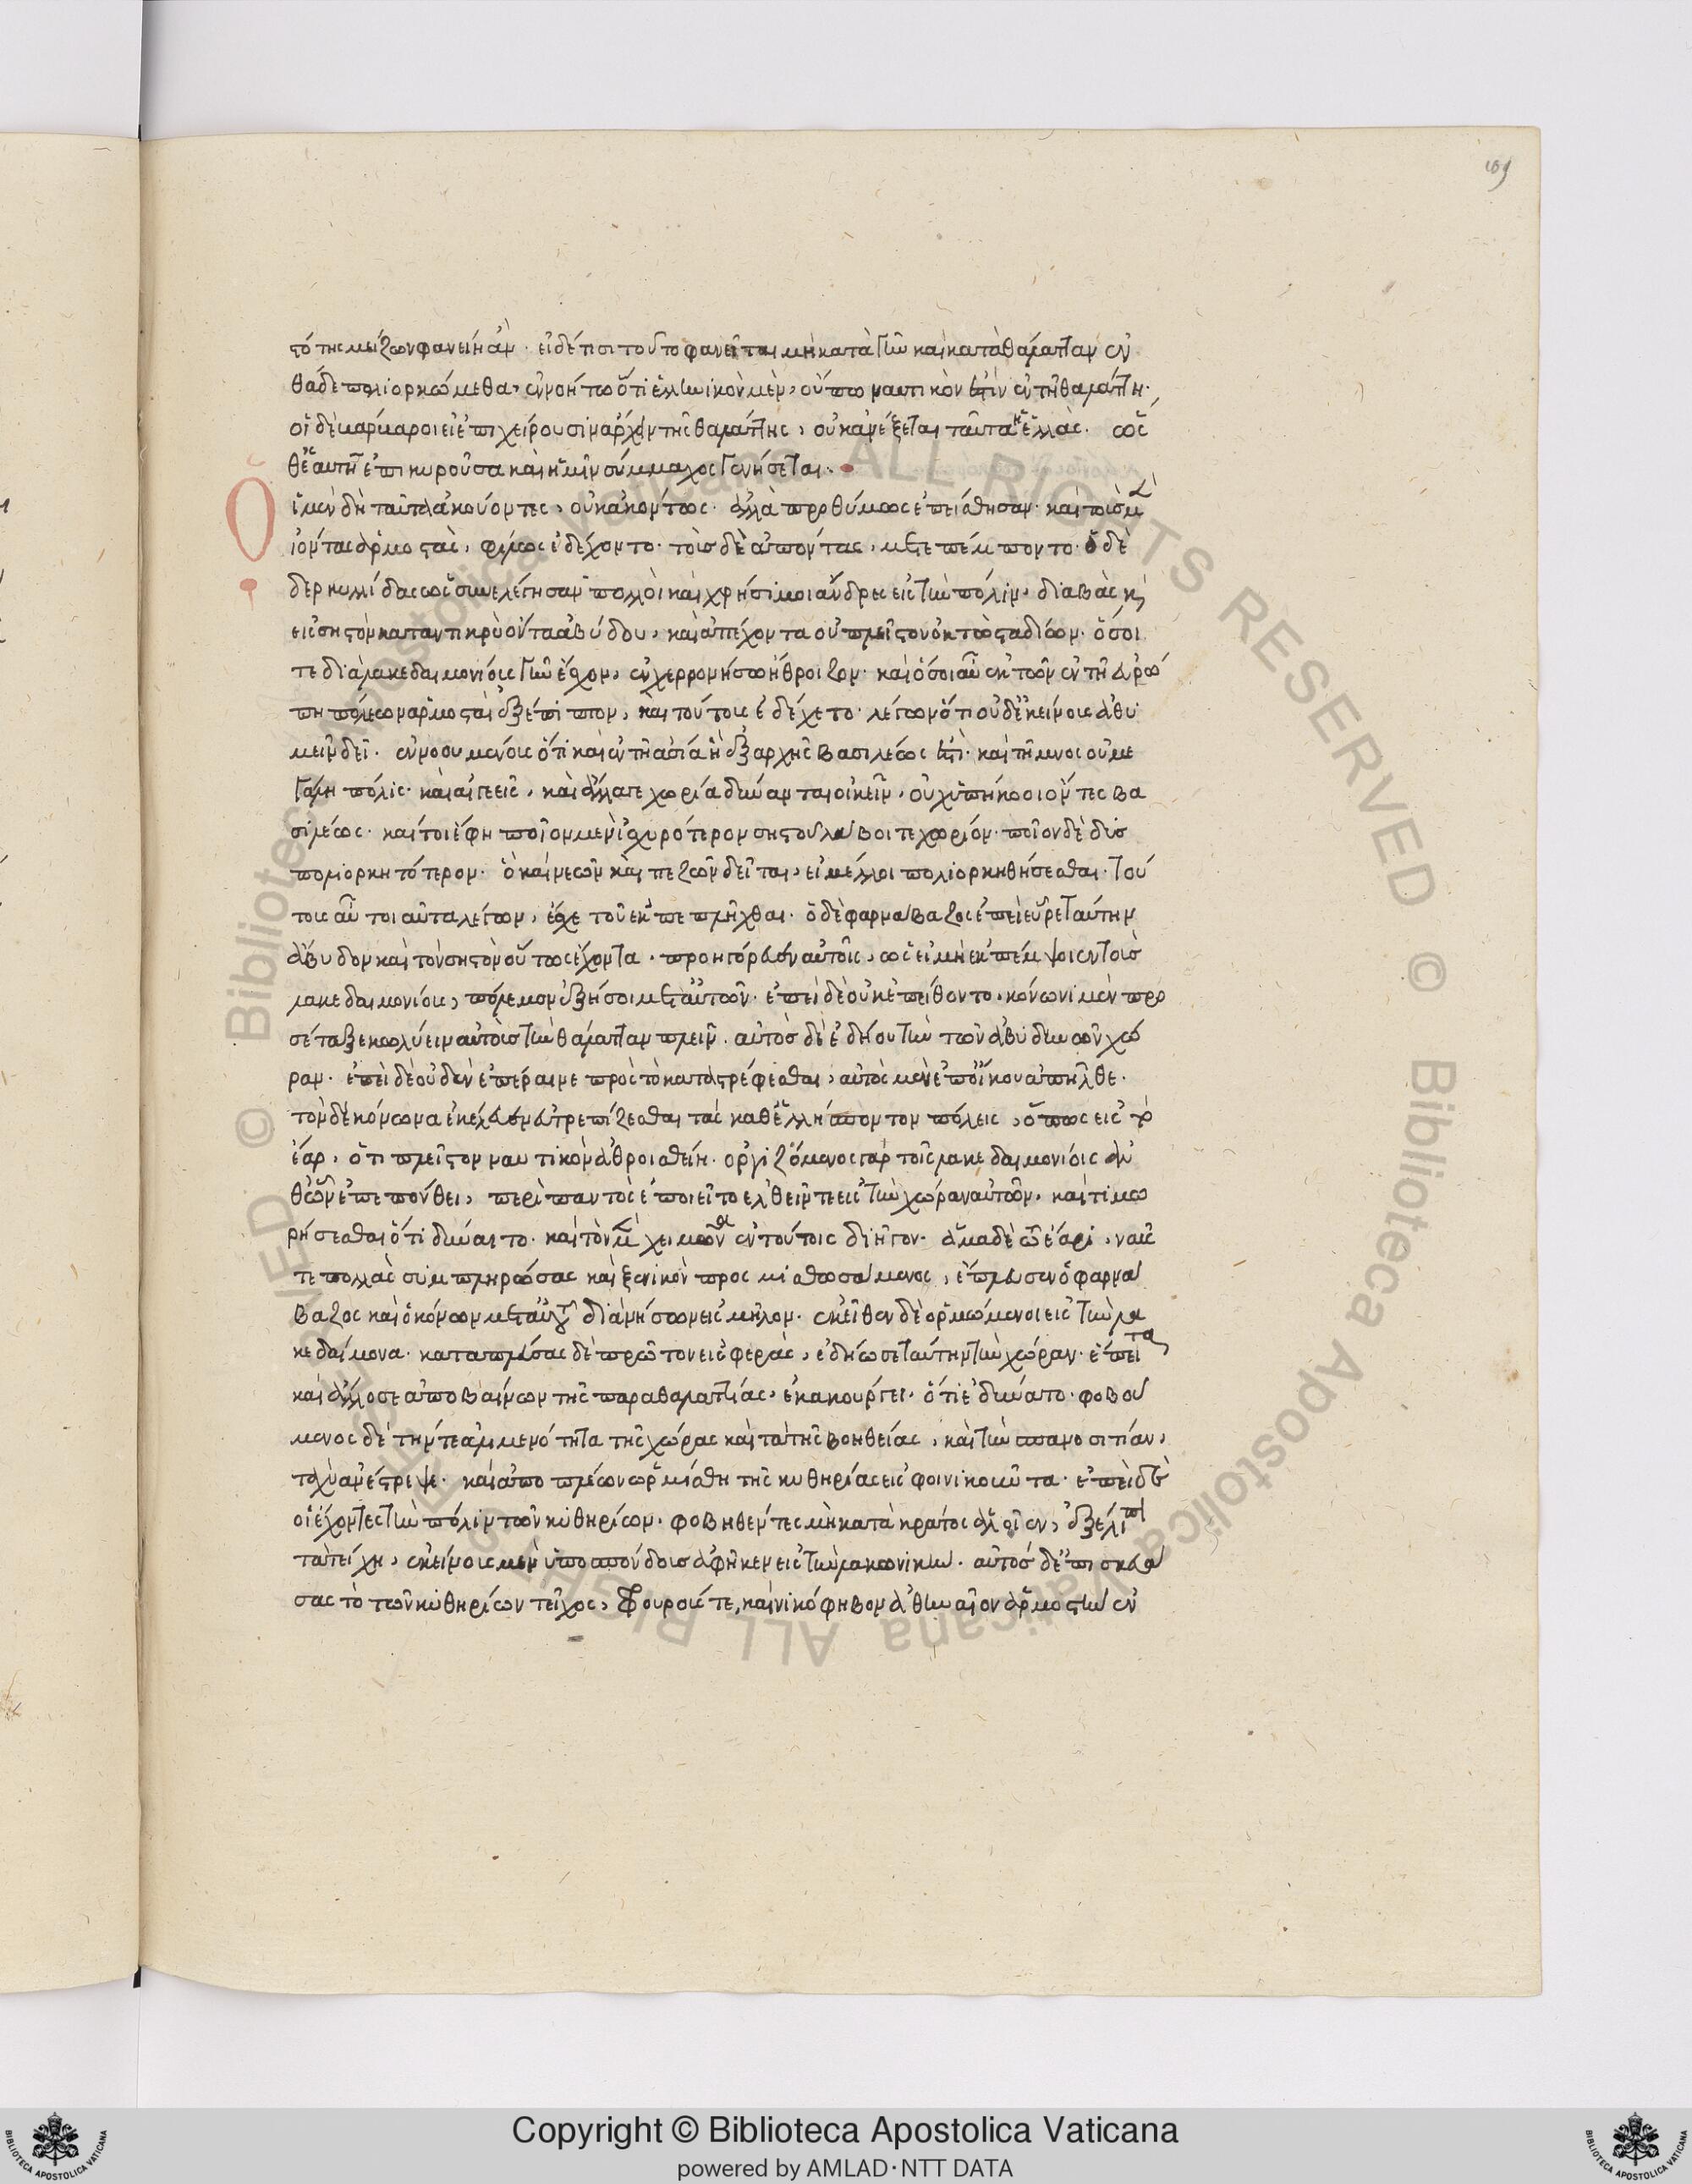 109
στότης μείζων φανείη ἄν. εἰ δέ τισι τοῦτο φανεῖται μὴ κατὰ γῆν καὶ κατὰ θάλατταν ἐν
θάδε πολιορκώμεθα, ἐννοήτω ὅτι ἑλληνικὸν μὲν, οὔπω ναυτικὸν ἐστὶν ἐν τῇ θαλάττῃ.
οἱ δὲ βάρβαροι εἰ ἐπιχειρήσουσιν ἄρχειν τῆς θαλάττης, οὐκ ἀνέξεται ταῦτα ἡ ἑλλάς. ὥς
θ' ἑαυτῇ ἐπικουροῦσα καὶ ἡμῖν σύμμαχος γενήσεται.
Οἱ μὲν δὴ ταῦτα ἀκούοντες, οὐκ ἀκόντως ἀλλὰ προθύμως ἐπείσθησαν. καὶ τοὺς μὲν
ἰόντας ἁρμοστὰς, φίλως ἐδέχοντο. τοὺς δὲ ἀπόντας, μετεπέμποντο. ὁ δὲ
δερκυλλίδας ὡς συνελέγησαν πολλοὶ καὶ χρήσιμοι ἄνδρες εἰς τὴν πόλιν, διαβὰς καὶ
εἰς σηστὸν καταντικρὺ ὄντα ἀβύδου, καὶ ἀπέχοντα οὐ πλεῖστον ὀκτὼ σταδίων. ὅσοι
τε διὰ λακεδαιμονίους γῆν ἔσχον, ἐν χερρονήσῳ ἤθροιζον. καὶ ὅσοι αὖ ἐκ τῶν ἐν τῇ εὐρώ
πῃ πόλεων ἁρμοσταὶ ἐξέπιπτον, καὶ τούτους ἐδέχετο. λέγων ὅτι οὐδ' ἐκείνους ἀθυ
μεῖν δεῖ. ἐννοουμένους ὅτι καὶ ἐν τῇ ἀσίᾳ ἣ ἐξ ἀρχῆς βασιλέως ἐστὶ. καὶ τῆμνος οὐ με
γάλη πόλις. καὶ αἰγεεῖς, καὶ ἄλλα τε χωρία δύνανται οἰκεῖν, οὐχ ὑπήκοοι ὄντες βα
σιλέως. καίτοι ἔφη ποῖον μὲν ἰσχυρότερον σηστοῦ λάβοιτε χωρίον. ποῖον δὲ δυσ
πολιορκητότερον. ὃ καὶ νεῶν καὶ πεζῶν δεῖται, εἰ μέλλοι πολιορκηθήσεσθαι. τού
τους αὖ τοιαῦτα λέγων, ἔσχε τοῦ ἐκπεπλῆχθαι. ὁ δὲ φαρνάβαζος ἐπεὶ εὗρε ταύτην
ἄβυδον καὶ τὸν σηστὸν οὕτως ἔχοντα, προηγόρευεν αὐτοῖς, ὡς εἰ μὴ ἐκπέμψοιεν τοὺς
λακεδαιμονίους, πόλεμον ἐξήσοι μετ' αὐτῶν. ἐπεὶ δὲ οὐκ ἐπείθοντο, κόνωνι μὲν προ
σέταξε κωλύειν αὐτοὺς τὴν θάλατταν πλεῖν. αὐτὸς δὲ ἐδῄου τὴν τῶν ἀβυδηνῶν χώ
ραν. ἐπεὶ δὲ οὐδὲν ἐπέραινε πρὸς τὸ καταστρέφεσθαι, αὐτὸς μὲν ἐπ' οἴκου ἀπῆλθε.
τὸν δὲ κόνωνα ἐκέλευεν εὐτρεπίζεσθαι τὰς καθ' ἑλλήσποντον πόλεις, ὅπως εἰς τὸ
ἔαρ, ὅτι πλεῖστον ναυτικὸν ἀθροισθείη. ὀργιζόμενος γὰρ τοῖς λακεδαιμονίοις ἀν
θ' ὧν ἐπεπόνθει, περὶ παντὸς ἐποιεῖτο ἐλθεῖν τε εἰς τὴν χώραν αὐτῶν, καὶ τιμω
ρήσασθαι ὅτι δύναιτο. καὶ τὸν μὲν χειμῶνα ἐν τούτοις διῆγον. ἅμα δὲ τῷ ἔαρι, ναῦς
τε πολλὰς συμπληρώσας καὶ ξενικὸν προσμισθωσάμενος, ἔπλευσεν ὁ φαρνά
βαζος καὶ ὁ κόνων μετ' αὐτοῦ διὰ νήσων εἰς μῆλον. ἐκεῖθεν δὲ ὁρμώμενοι εἰς τὴν λα
κεδαίμονα. καταπλεύσας δὲ πρῶτον εἰς φερὰς, ἐδῄωσε ταύτην τὴν χώραν. ἔπειτα
καὶ ἄλλοσε ἀποβαίνων τῆς παραθαλαττίας, ἐκακούργει ὅτι ἐδύνατο. φοβού
μενος δὲ τήν τε ἀλιμενότητα τῆς χώρας καὶ τὰ τῆς βοηθείας, καὶ τὴν σπανοσιτίαν,
ταχὺ ἀνέστρεψε. καὶ ἀποπλέων ὡρμίσθη τῆς κυθηρίας εἰς φοινικοῦντα. ἐπεὶ δὲ
οἱ ἔχοντες τὴν πόλιν τῶν κυθηρίων, φοβηθέντες μὴ κατὰ κράτος ἁλοῖεν, ἐξέλιπον
τὰ τείχη, ἐκείνους μὲν ὑποσπόνδους ἀφῆκεν εἰς τὴν λακωνικήν. αὐτὸς δ' ἐπισκευά
σας τὸ τῶν κυθηρίων τεῖχος, φρουρούς τε, καὶ νικόφηβον ἀθηναῖον ἁρμοστὴν ἐν
Copyright © Biblioteca Apostolica Vaticana
powered by AMLAD·NTT DATA